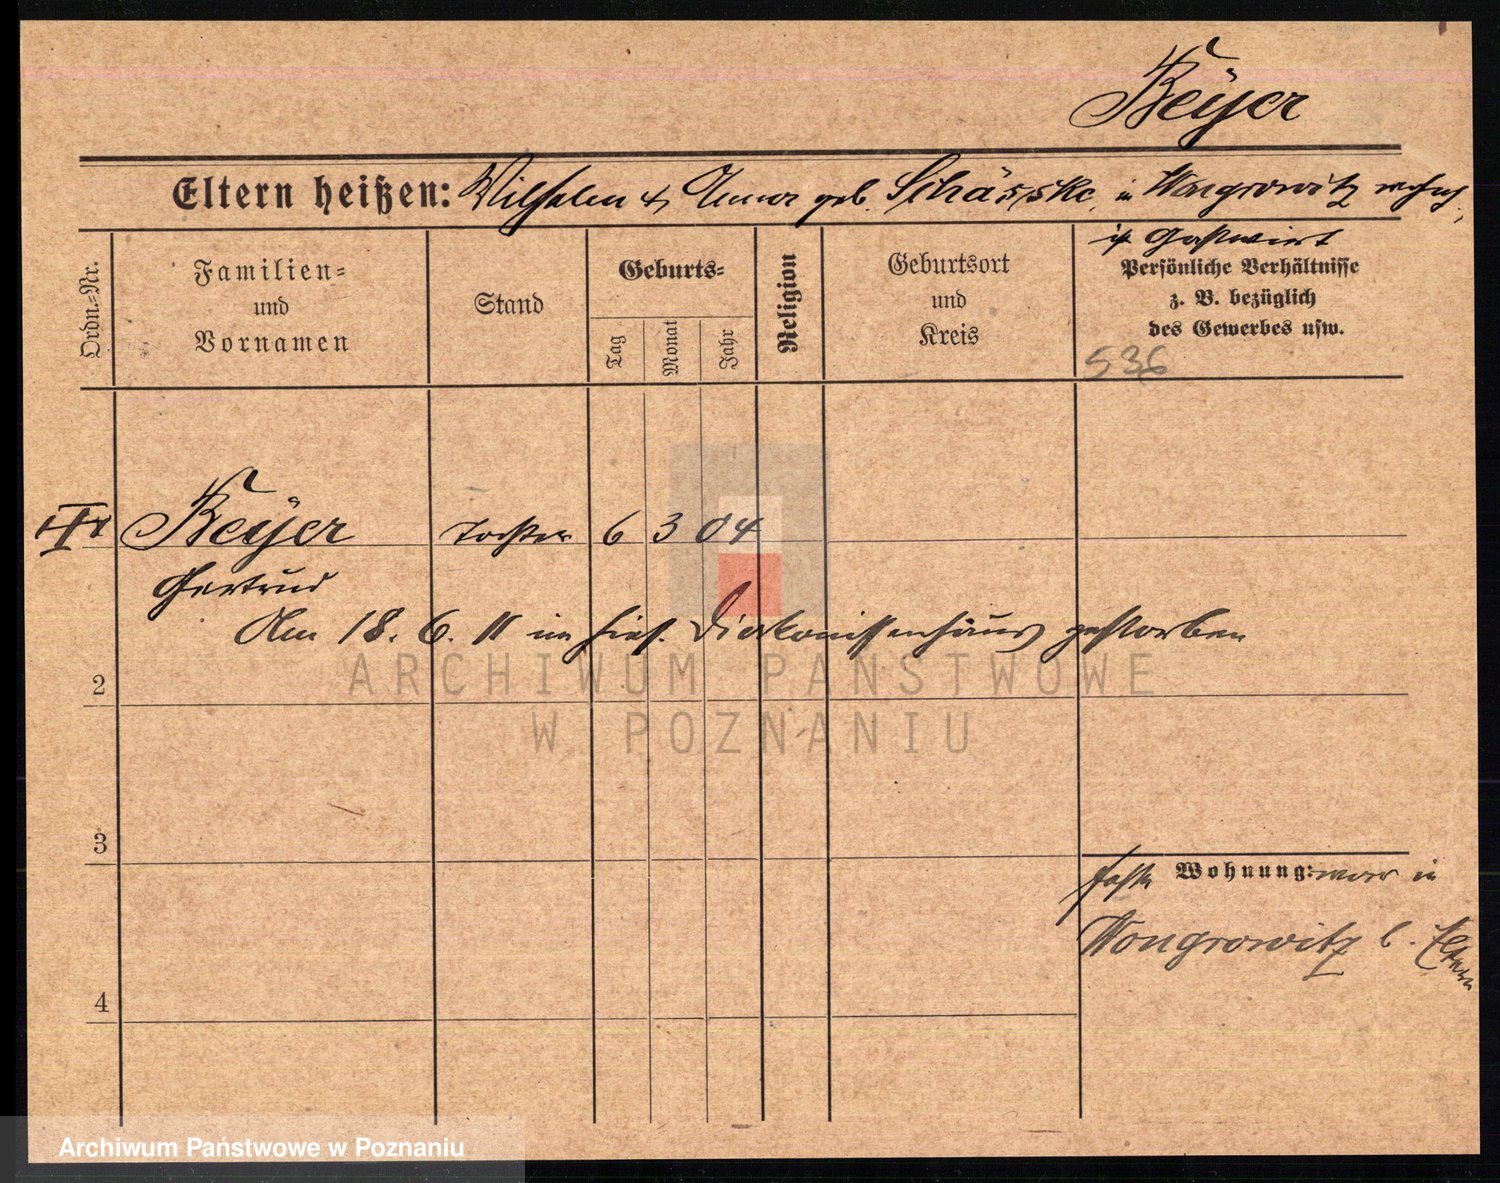 Beÿer
Eltern heißen: Wilhelm u. Anna geb. in Wongrowitz wohnh.,
ist Gastwirt
Ordn.-Nr.
Familien-
und
Vornamen
Stand
Geburts-
Tag
Monat
Jahr
Religion
Geburtsort
und
Kreis
Persönliche Verhältnisse
z. B. bezüglich
des Gewerbes usw.
536
Beÿer Tochter 6 3 04
Gertrud
Am 18. 6. 11 im hies. Diakonissenhaus gestorben
2
3
4
feste Wohnung: war in
Wongrowitz b. Eltern
ARCHIWUM PAŃSTWOWE
W POZNANIU
Archiwum Państwowe w Poznaniu